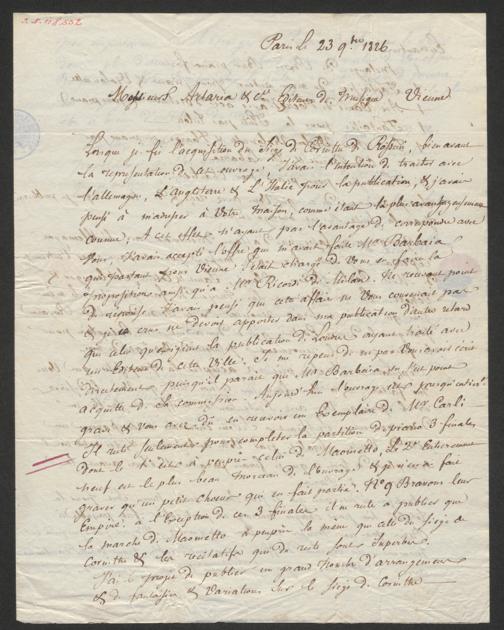 Paris le 23 9bre 1826
Messieurs Artaria & Cie Editeurs de Musique Vienne
Lorsque je fis l'acquisition du Siège de Corinthe de Rossini, bien avant
la représentation de cet ouvrage, j'avais l'intention de traiter avec
l'allemagne, L'Angleterre & L'Italie pour la publication, & j'avais
pensé à m'adresser à Votre Maison, comme étant la plus avantageusement
connue; A cet effet n'ayant pas l'avantage de correspondre avec
Vous, j'avais accepté l'offre que m'avait faite Mr Barbaia
que partant pour Vienne il était chargé de Vous en faire la
proposition ainsi qu'à Mr Ricordi de Milan. Ne recevant point
de réponse j'avais pensé que cette affaire ne Vous convenait pas
& je crus ne devoir apporter dans ma publication d'autre retard
que celui qu'exigeait la publication de Londres ayant traité avec
un Editeur de cette Ville. Je me repens de ne pas Vous avoir écrit
directement puisqu'il parait que Mr Barbaia ne s'est point
acquitté de la commission Aujourd'hui l'ouvrage est presqu'entièrement
gravé & vous avez dû en recevoir un Exemplaire de Mr Carli
Il reste seulement pour compléter la partition de piano 3 finales
dont le 1er est à peu près celui de Maometto, Le 2e Entièrement
neuf est le plus beau morceau de l'ouvrage & je n'en ai fait
graver qu'un petit choeur qui en fait partie. No 9 Bravons leur
Empire. à l'Exception de ces 3 finales il me reste à publier que
la marche de Maometto à peu près la même que celle du Siège de
Corinthe & les récitatifs qui du reste sont Superbes.
J'ai le projet de publier un grand Nombre d'arrangemens
& de fantaisies & Variations sur le Siège de Corinthe